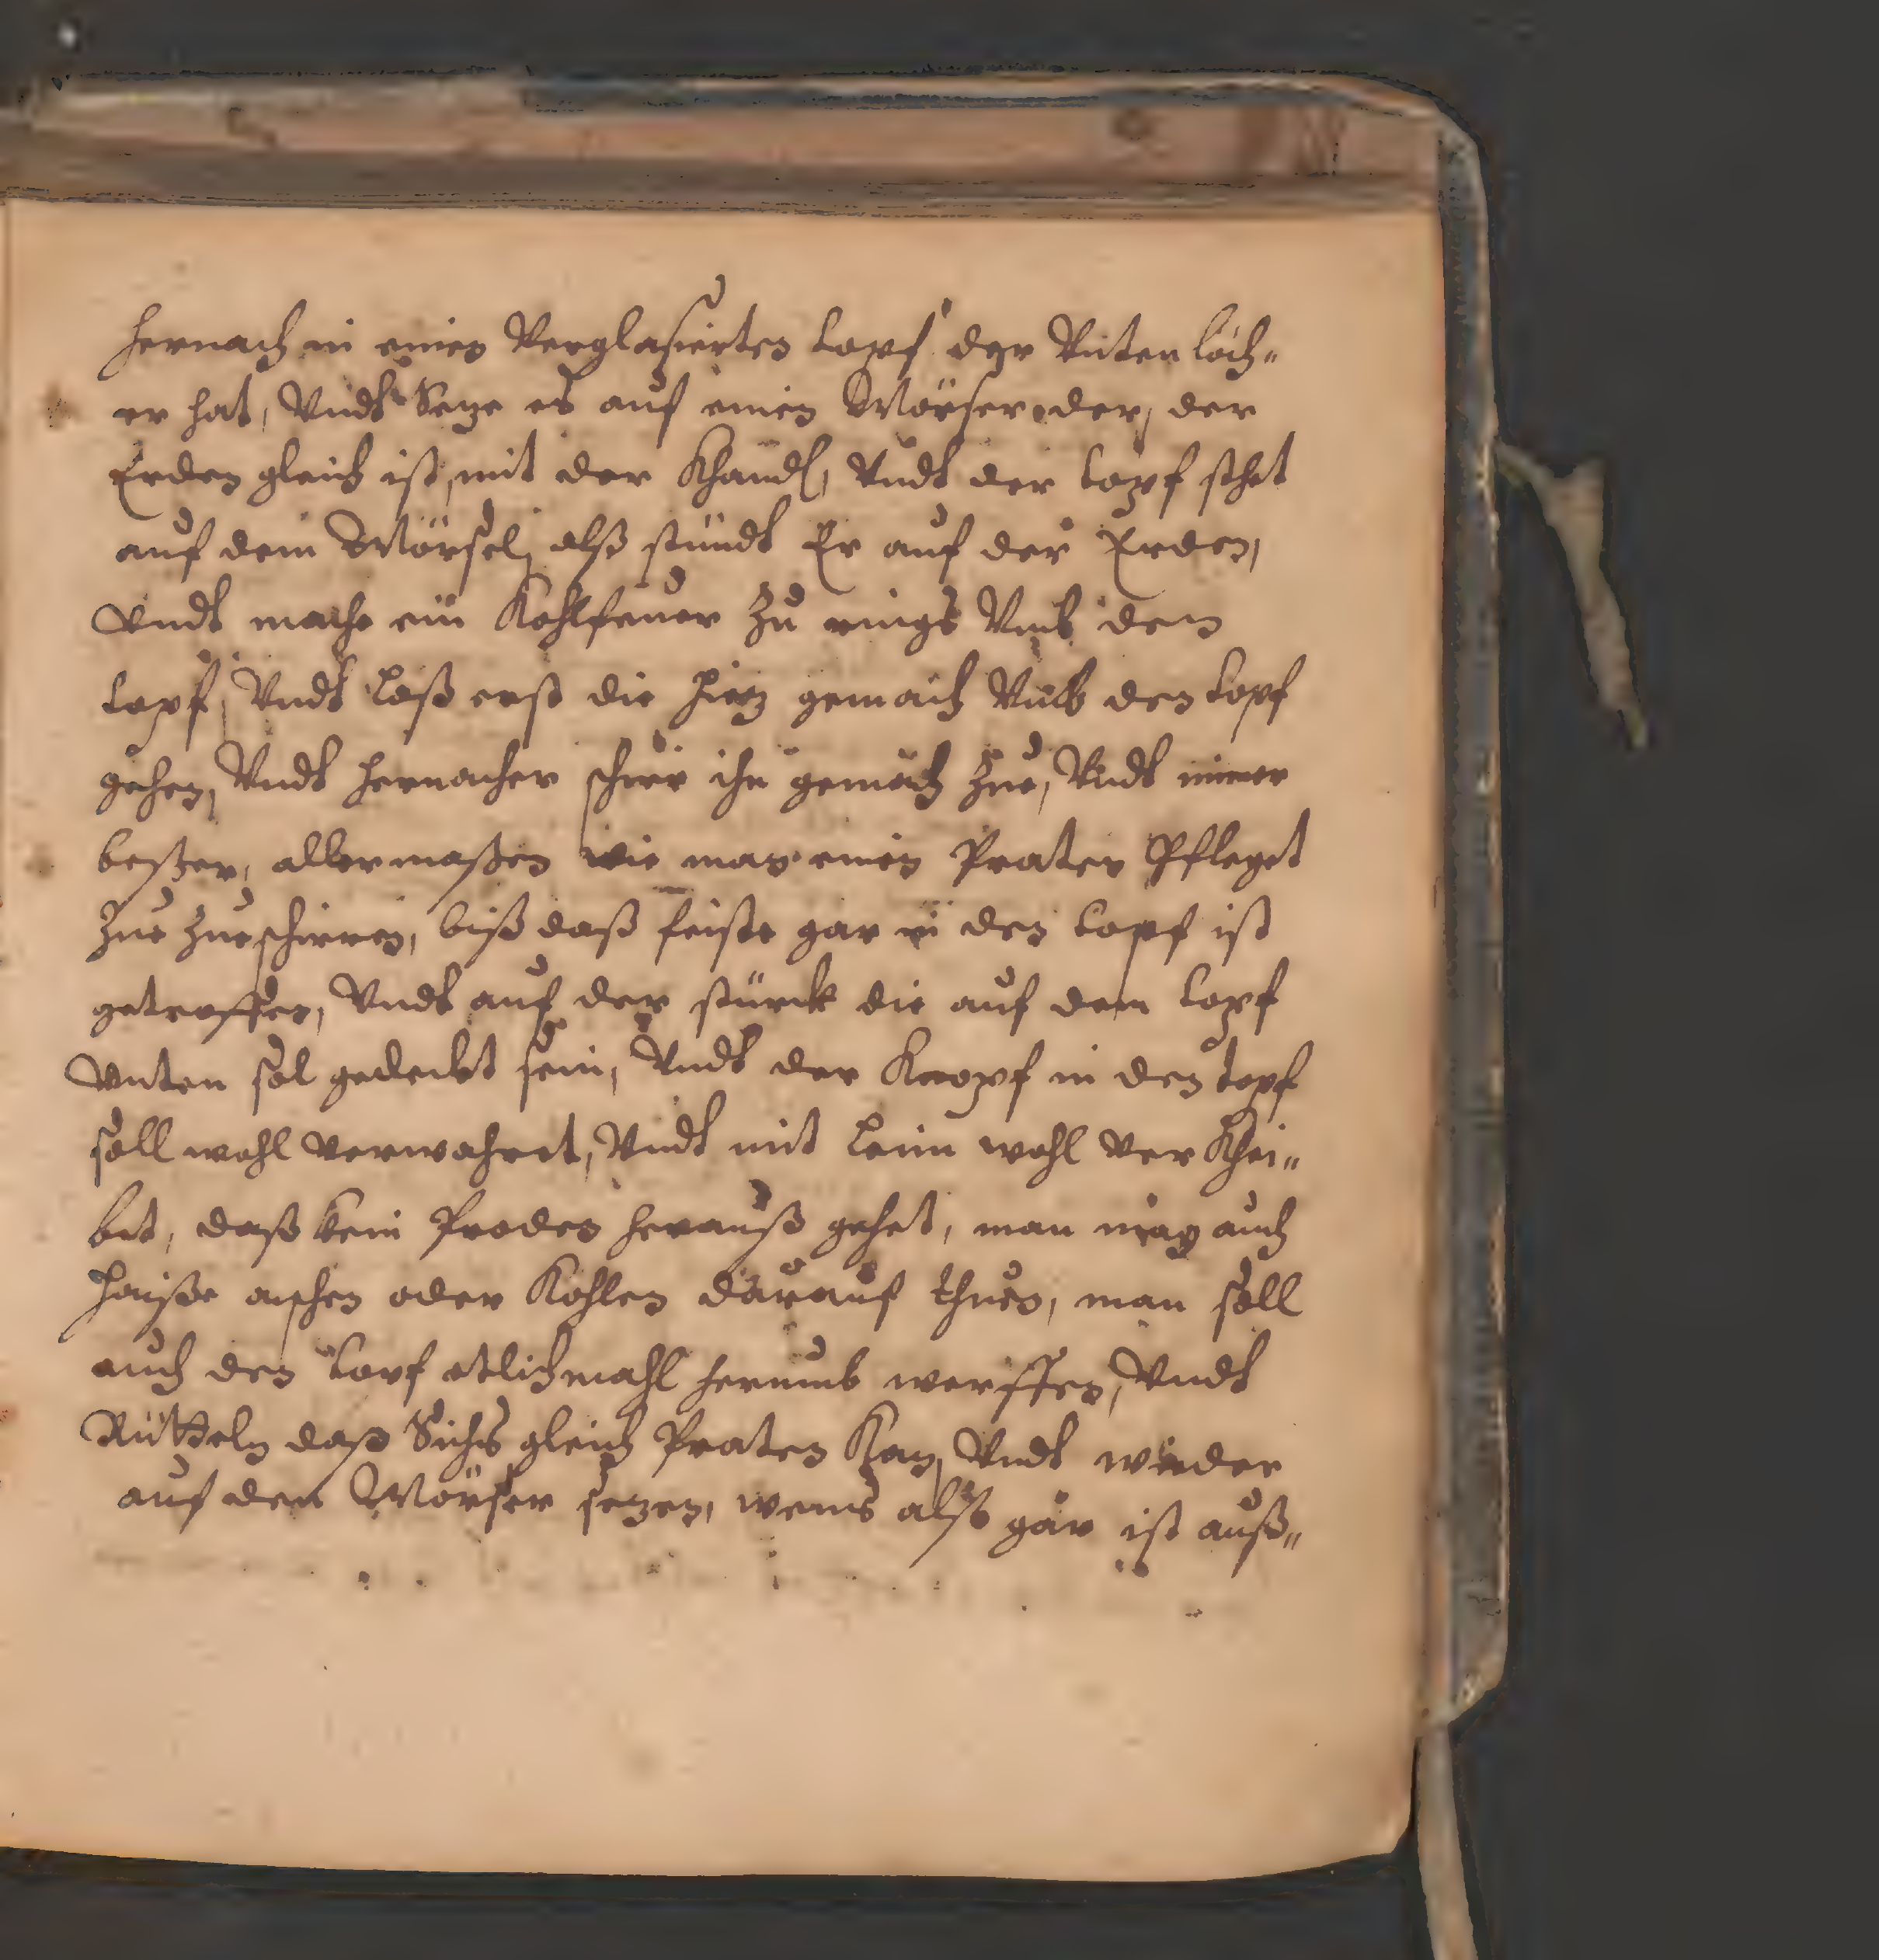 hernach in einen Verglasierten topf der Vnten löch„
er hat, Vndt Seze es auf einen Mörser, der, der
Erden gleich ist, mit der Khandl, Vndt der topf sthet
auf dem Mörsel, alß stündt Er auf der Erden,
Vndt mache ein Kohlfeuer Zu rings Vmb den
topf, Vndt laß erst die hiez gemach Vmb den topf
gehen, Vndt hernacher schier ihn gemach Zue, Vndt immer
beßer, allermaßen wie man einen Praten Pfleget
Zue Zueschirren, biß daß feiste gar in den topf ist
getroffen, Vndt auf der stürck die auf dem topf
Vnten sol gedeckt sein, Vndt der Knopf in den topf
soll wohl verwahret, Vndt mit laim wohl ver Khei„
bet, daß kein Proden herauß gehet, man mag auch
haiße aschen oder Kohlen darauf thuen, man soll
auch den topf etlichmahl herumb werffen, Vndt
Rütteln daß Sichs gleich Praten Kan, Vndt wieder
auf den Mörser sezen, wenns alß gar ist auß„